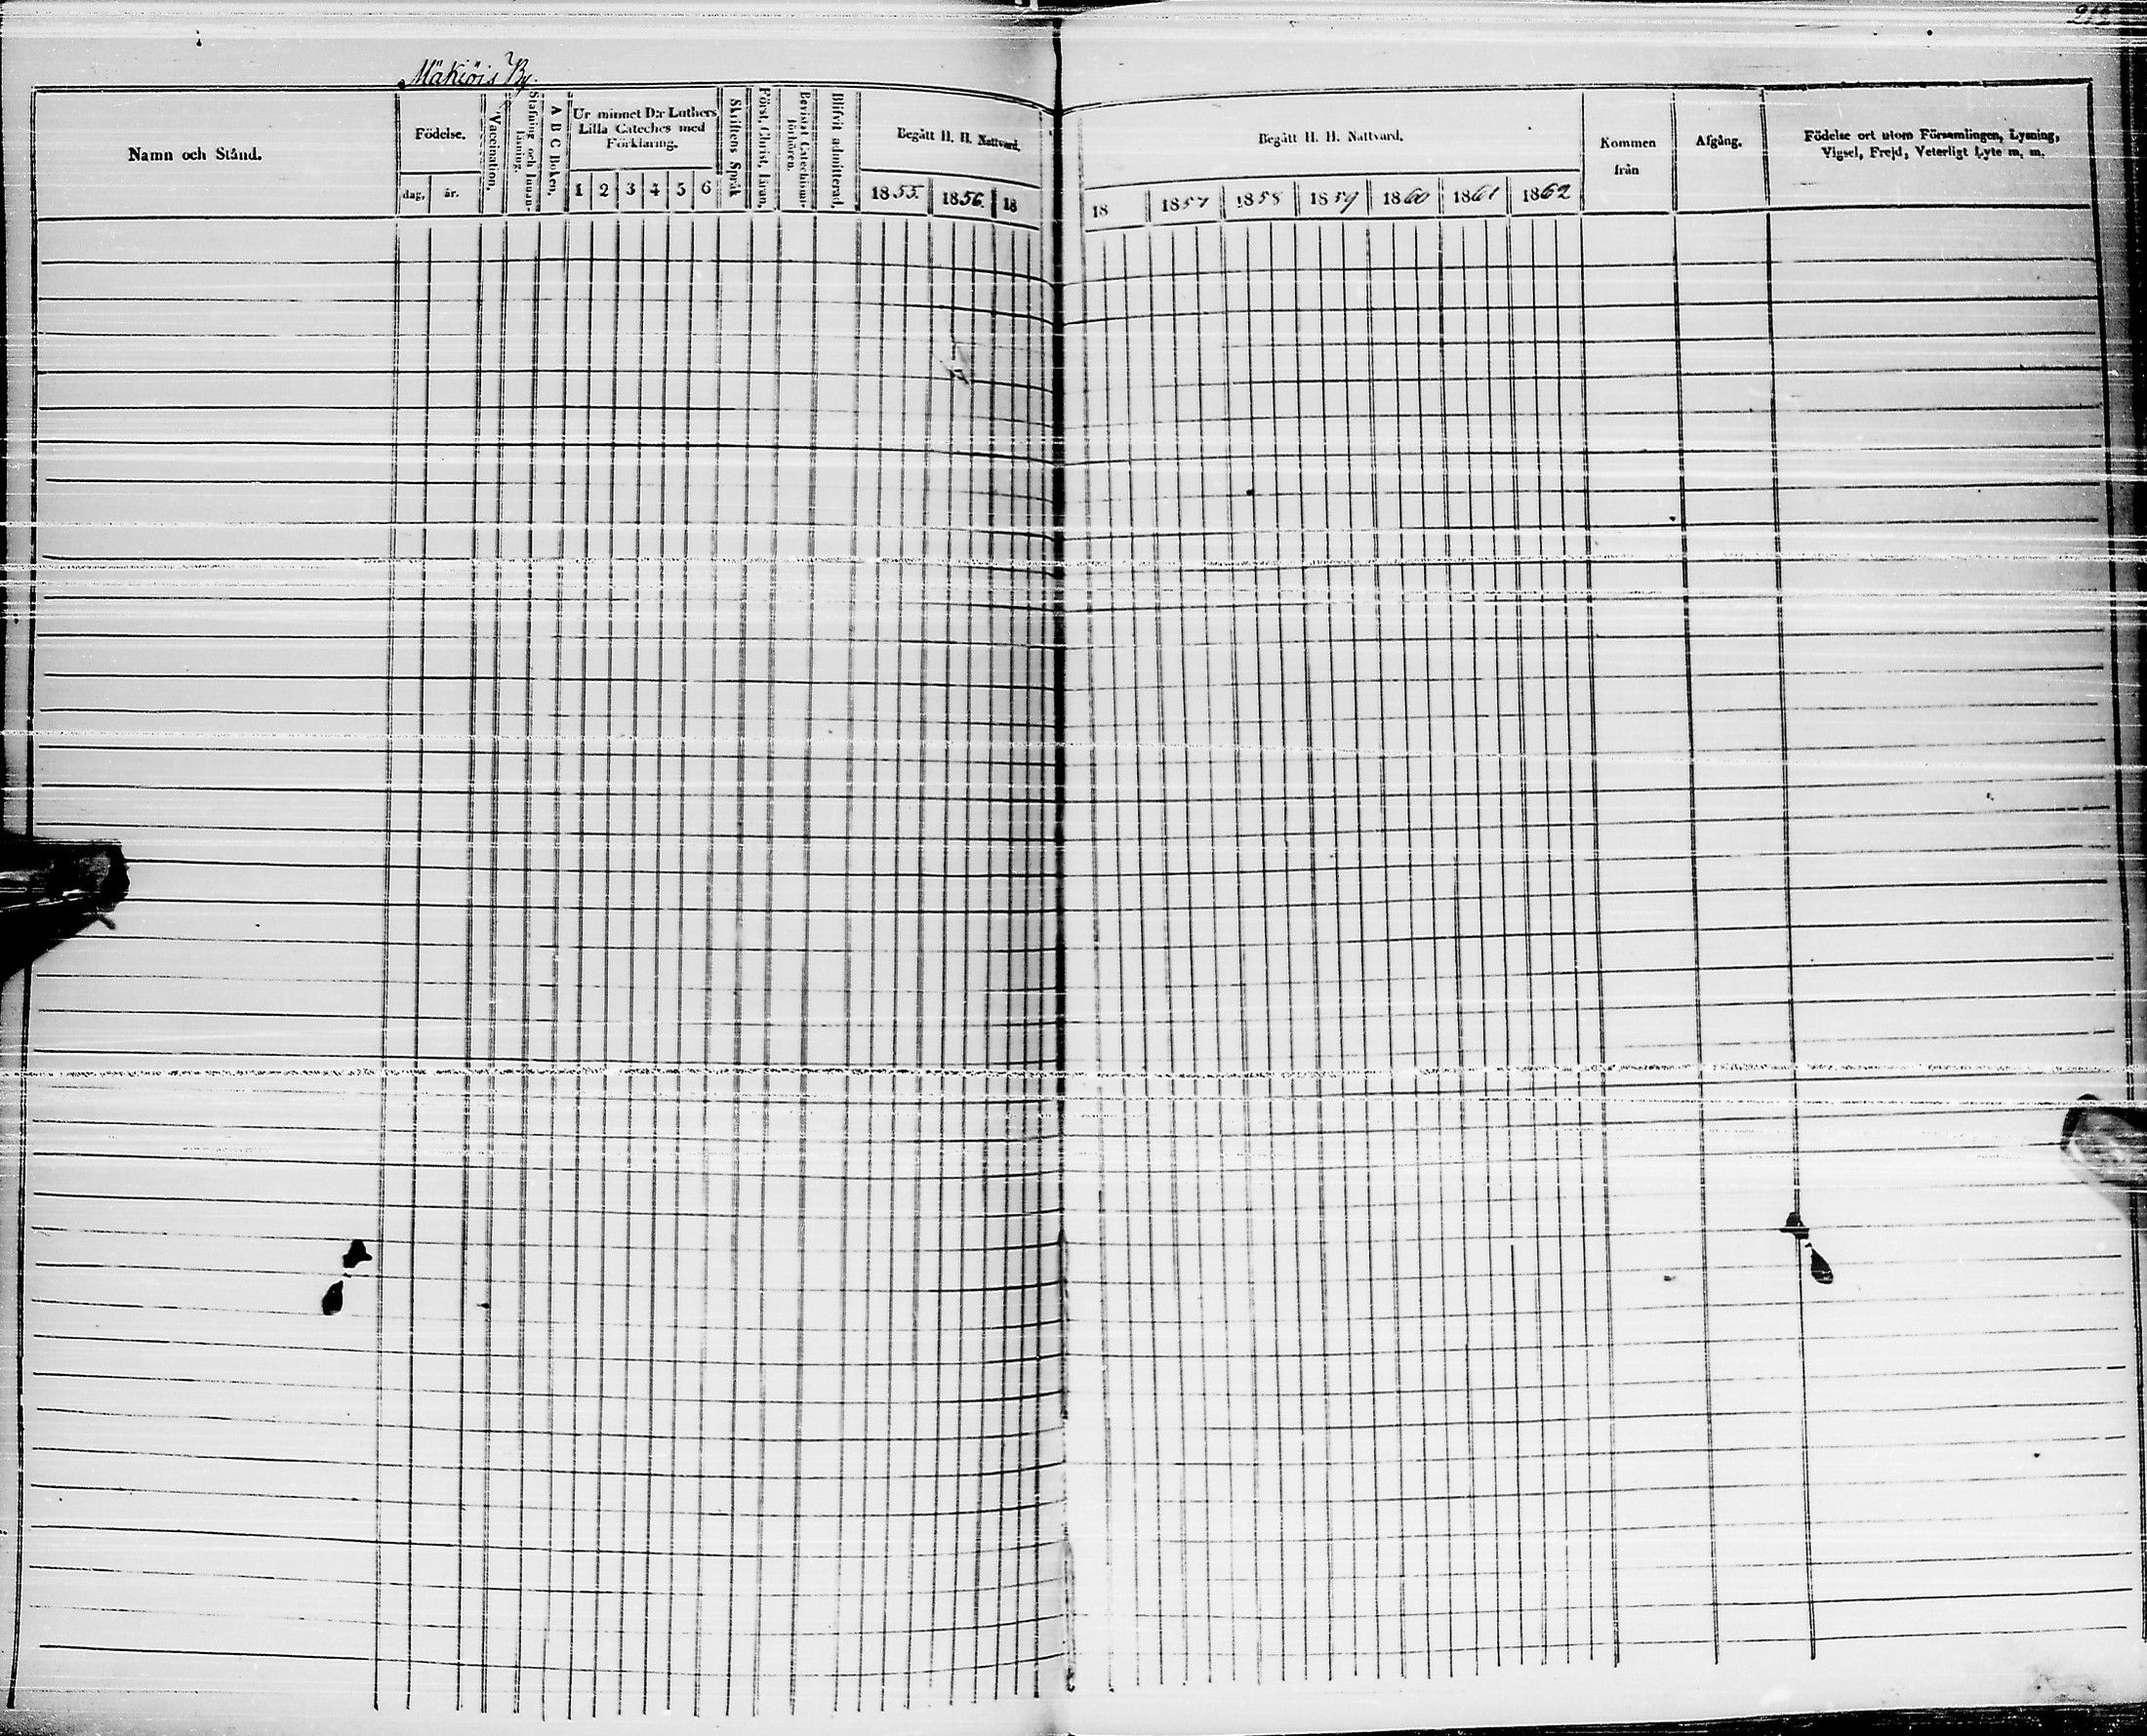 Mäkiöis By.
Namn och Stånd.
Födelse.
dag,
år.
Vaccination,
Stafning och Innan-
läsning.
A B C Boken,
Ur minnet D:r Luthers
Lilla Cateches med
Förklaring.
1 2 3 4 5 6
Skriftens Språk
Först. Christ. Läran,
Bevistat Catechismi-
förhören.
Blifvit admitterad,
Begått H. H. Nattvard.
1855. 1856. 18
Begått H. H. Nattvard.
18 1857 1858 1859 1860 1861 1862
Kommen
från
Afgång.
Födelse ort utom Församlingen, Lysning,
Vigsel, Frejd, Veterligt Lyte m. m.